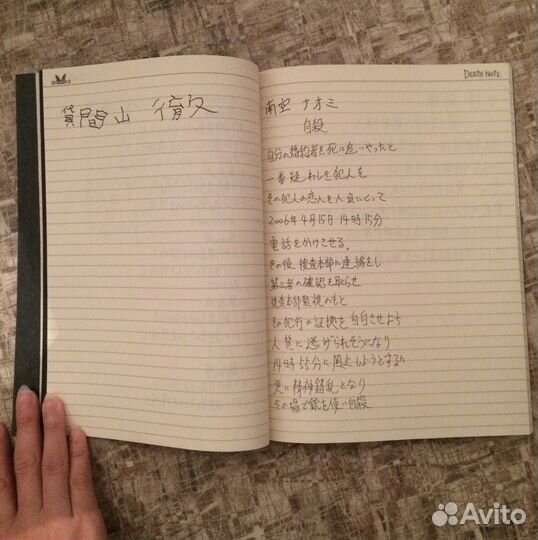 貸間山 徹
DEATH NOTE
南空 ナオミ
自殺
自分の婚約者を死に追いやったと
一番疑わしき犯人を
その犯人の恋人を人質にとって
2006年4月15日14時15分
電話をかけさせる。
その後 捜査本部に連絡をし
第三者の確認を取らせ
捜査本部監視のもと
その犯行の証拠を自白させよう
人質に逃げられそうになり
14時55分に阻止しようとするが
更に精神錯乱となり
その場で銃を使い自殺
Avito